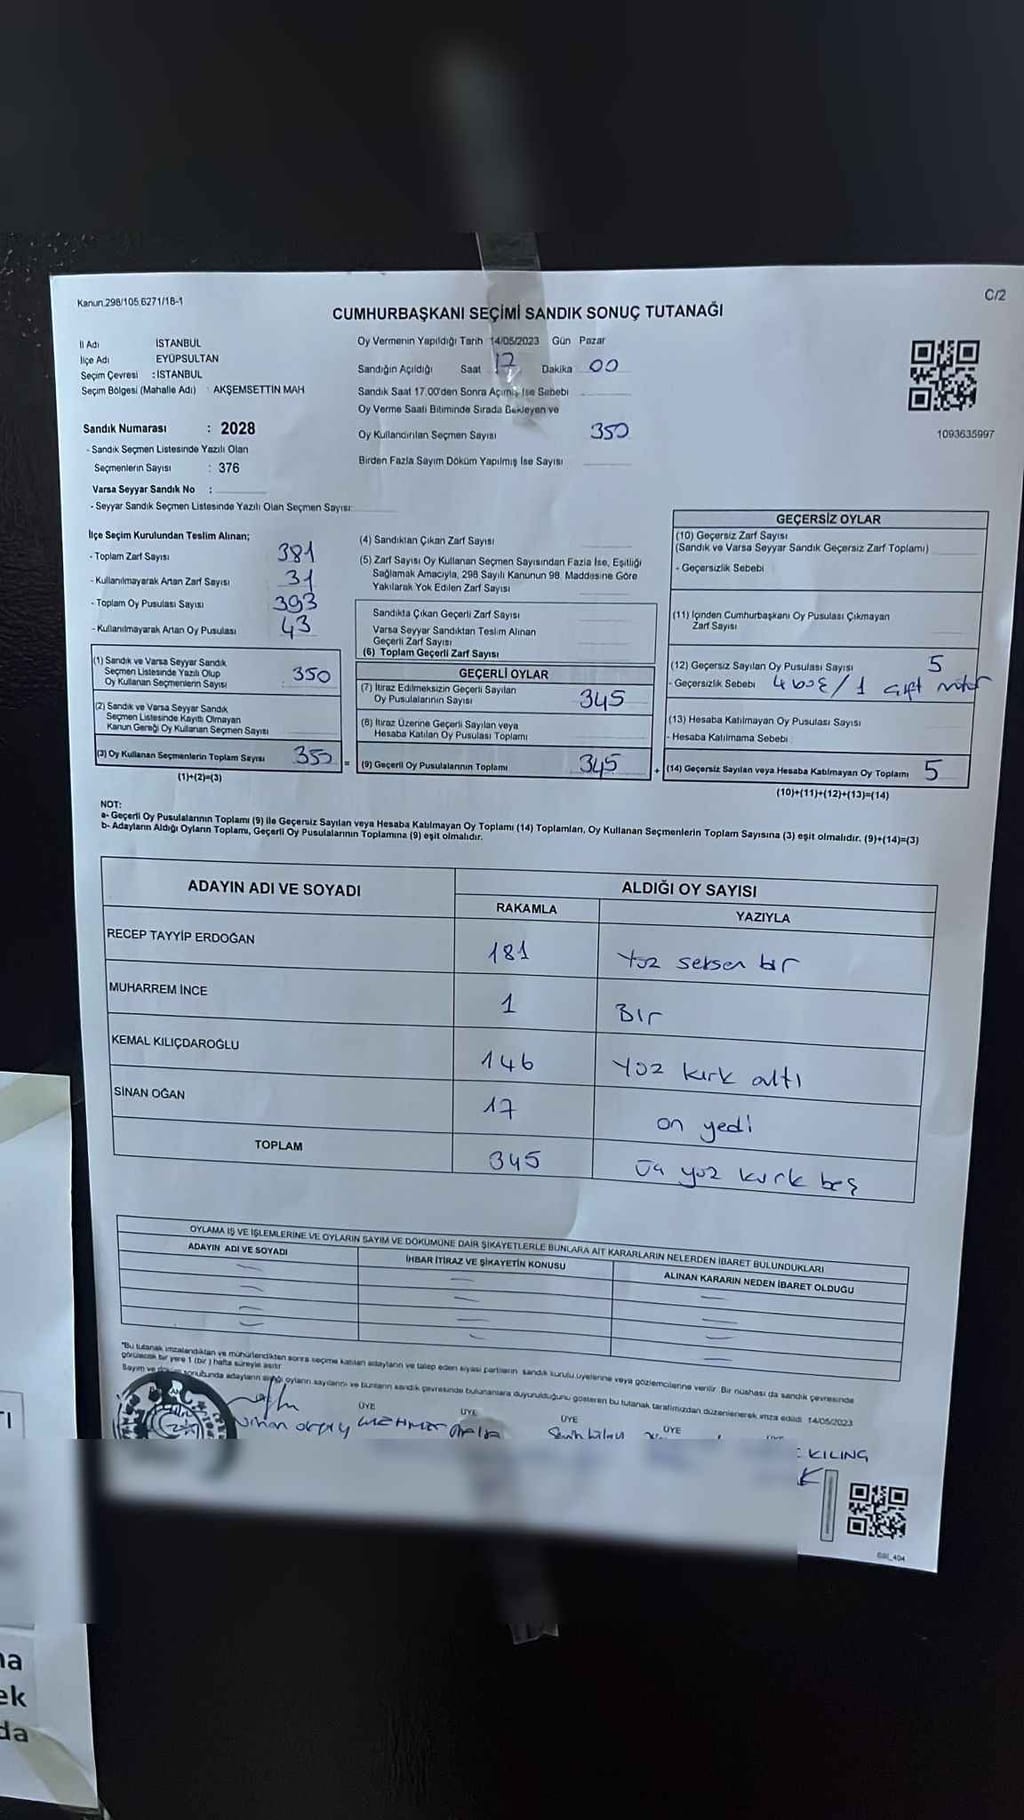 Kanun.298/105.6271/18-1
C/2
CUMHURBAŞKANI SEÇİMİ SANDIK SONUÇ TUTANAĞI
İl Adı İSTANBUL
İlçe Adı EYÜPSULTAN
Seçim Çevresi : İSTANBUL
Seçim Bölgesi (Mahalle Adı) : AKŞEMSETTİN MAH
Sandık Numarası : 2028
- Sandık Seçmen Listesinde Yazılı Olan
Seçmenlerin Sayısı : 376
Varsa Seyyar Sandık No :
- Seyyar Sandık Seçmen Listesinde Yazılı Olan Seçmen Sayısı:
Oy Vermenin Yapıldığı Tarih 14/05/2023 Gün Pazar
Sandığın Açıldığı Saat 17 Dakika 00
Sandık Saat 17.00'den Sonra Açılmış İse Sebebi
Oy Verme Saati Bitiminde Sırada Bekleyen ve
Oy Kullandırılan Seçmen Sayısı 350
Birden Fazla Sayım Döküm Yapılmış İse Sayısı
1093635997
İlçe Seçim Kurulundan Teslim Alınan;
- Toplam Zarf Sayısı 381
- Kullanılmayarak Artan Zarf Sayısı 31
- Toplam Oy Pusulası Sayısı 393
- Kullanılmayarak Artan Oy Pusulası 43
(1) Sandık ve Varsa Seyyar Sandık
Seçmen Listesinde Yazılı Olup
Oy Kullanan Seçmenlerin Sayısı 350
(2) Sandık ve Varsa Seyyar Sandık
Seçmen Listesinde Kayıtlı Olmayan
Kanun Gereği Oy Kullanan Seçmen Sayısı
(3) Oy Kullanan Seçmenlerin Toplam Sayısı 350 =
(1)+(2)=(3)
(4) Sandıktan Çıkan Zarf Sayısı
(5) Zarf Sayısı Oy Kullanan Seçmen Sayısından Fazla İse, Eşitliği
Sağlamak Amacıyla, 298 Sayılı Kanunun 98. Maddesine Göre
Yakılarak Yok Edilen Zarf Sayısı
Sandıkta Çıkan Geçerli Zarf Sayısı
Varsa Seyyar Sandıktan Teslim Alınan
Geçerli Zarf Sayısı
(6) Toplam Geçerli Zarf Sayısı
GEÇERLİ OYLAR
(7) İtiraz Edilmeksizin Geçerli Sayılan
Oy Pusulalarının Sayısı 345
(8) İtiraz Üzerine Geçerli Sayılan veya
Hesaba Katılan Oy Pusulası Toplamı
(9) Geçerli Oy Pusulalarının Toplamı 345 +
GEÇERSİZ OYLAR
(10) Geçersiz Zarf Sayısı
(Sandık ve Varsa Seyyar Sandık Geçersiz Zarf Toplamı)
- Geçersizlik Sebebi
(11) İçinden Cumhurbaşkanı Oy Pusulası Çıkmayan
Zarf Sayısı
(12) Geçersiz Sayılan Oy Pusulası Sayısı 5
- Geçersizlik Sebebi 4 boş / 1 çift mühür
(13) Hesaba Katılmayan Oy Pusulası Sayısı
- Hesaba Katılmama Sebebi
(14) Geçersiz Sayılan veya Hesaba Katılmayan Oy Toplamı 5
(10)+(11)+(12)+(13)=(14)
NOT:
a- Geçerli Oy Pusulalarının Toplamı (9) ile Geçersiz Sayılan veya Hesaba Katılmayan Oy Toplamı (14) Toplamları, Oy Kullanan Seçmenlerin Toplam Sayısına (3) eşit olmalıdır. (9)+(14)=(3)
b- Adayların Aldığı Oyların Toplamı, Geçerli Oy Pusulalarının Toplamına (9) eşit olmalıdır.
ADAYIN ADI VE SOYADI
ALDIĞI OY SAYISI
RAKAMLA YAZIYLA
RECEP TAYYİP ERDOĞAN 181 Yüz seksen bir
MUHARREM İNCE 1 Bir
KEMAL KILIÇDAROĞLU 146 Yüz kırk altı
SİNAN OĞAN 17 on yedi
TOPLAM 345 üç yüz kırk beş
OYLAMA İŞ VE İŞLEMLERİNE VE OYLARIN SAYIM VE DÖKÜMÜNE DAİR ŞİKAYETLERLE BUNLARA AİT KARARLARIN NELERDEN İBARET BULUNDUKLARI
ADAYIN ADI VE SOYADI İHBAR İTİRAZ VE ŞİKAYETİN KONUSU ALINAN KARARIN NEDEN İBARET OLDUĞU
*Bu tutanak imzalandıktan ve mühürlendikten sonra seçime katılan adayların ve talep eden siyasi partilerin sandık kurulu üyelerine veya gözlemcilerine verilir. Bir nüshası da sandık çevresinde
görülecek bir yere 1 (bir) hafta süreyle asılır.
Sayım ve döküm sonucunda adayların aldığı oyların sayılarını ve bunların sandık çevresinde bulunanlara duyurulduğunu gösteren bu tutanak tarafımızdan düzenlenerek imza edildi. 14/05/2023
ÜYE ÜYE ÜYE ÜYE
: KILINÇ
na
ek
da